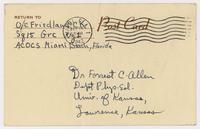 RETURN TO
Post Card
O/C Friedland, C.K.
Sq 15 Grc
AC OCS Miami Beach, Florida
Dr Forrest C. Allen
Dept Phys. Ed.
Univ. of Kansas,
Lawrence, Kansas